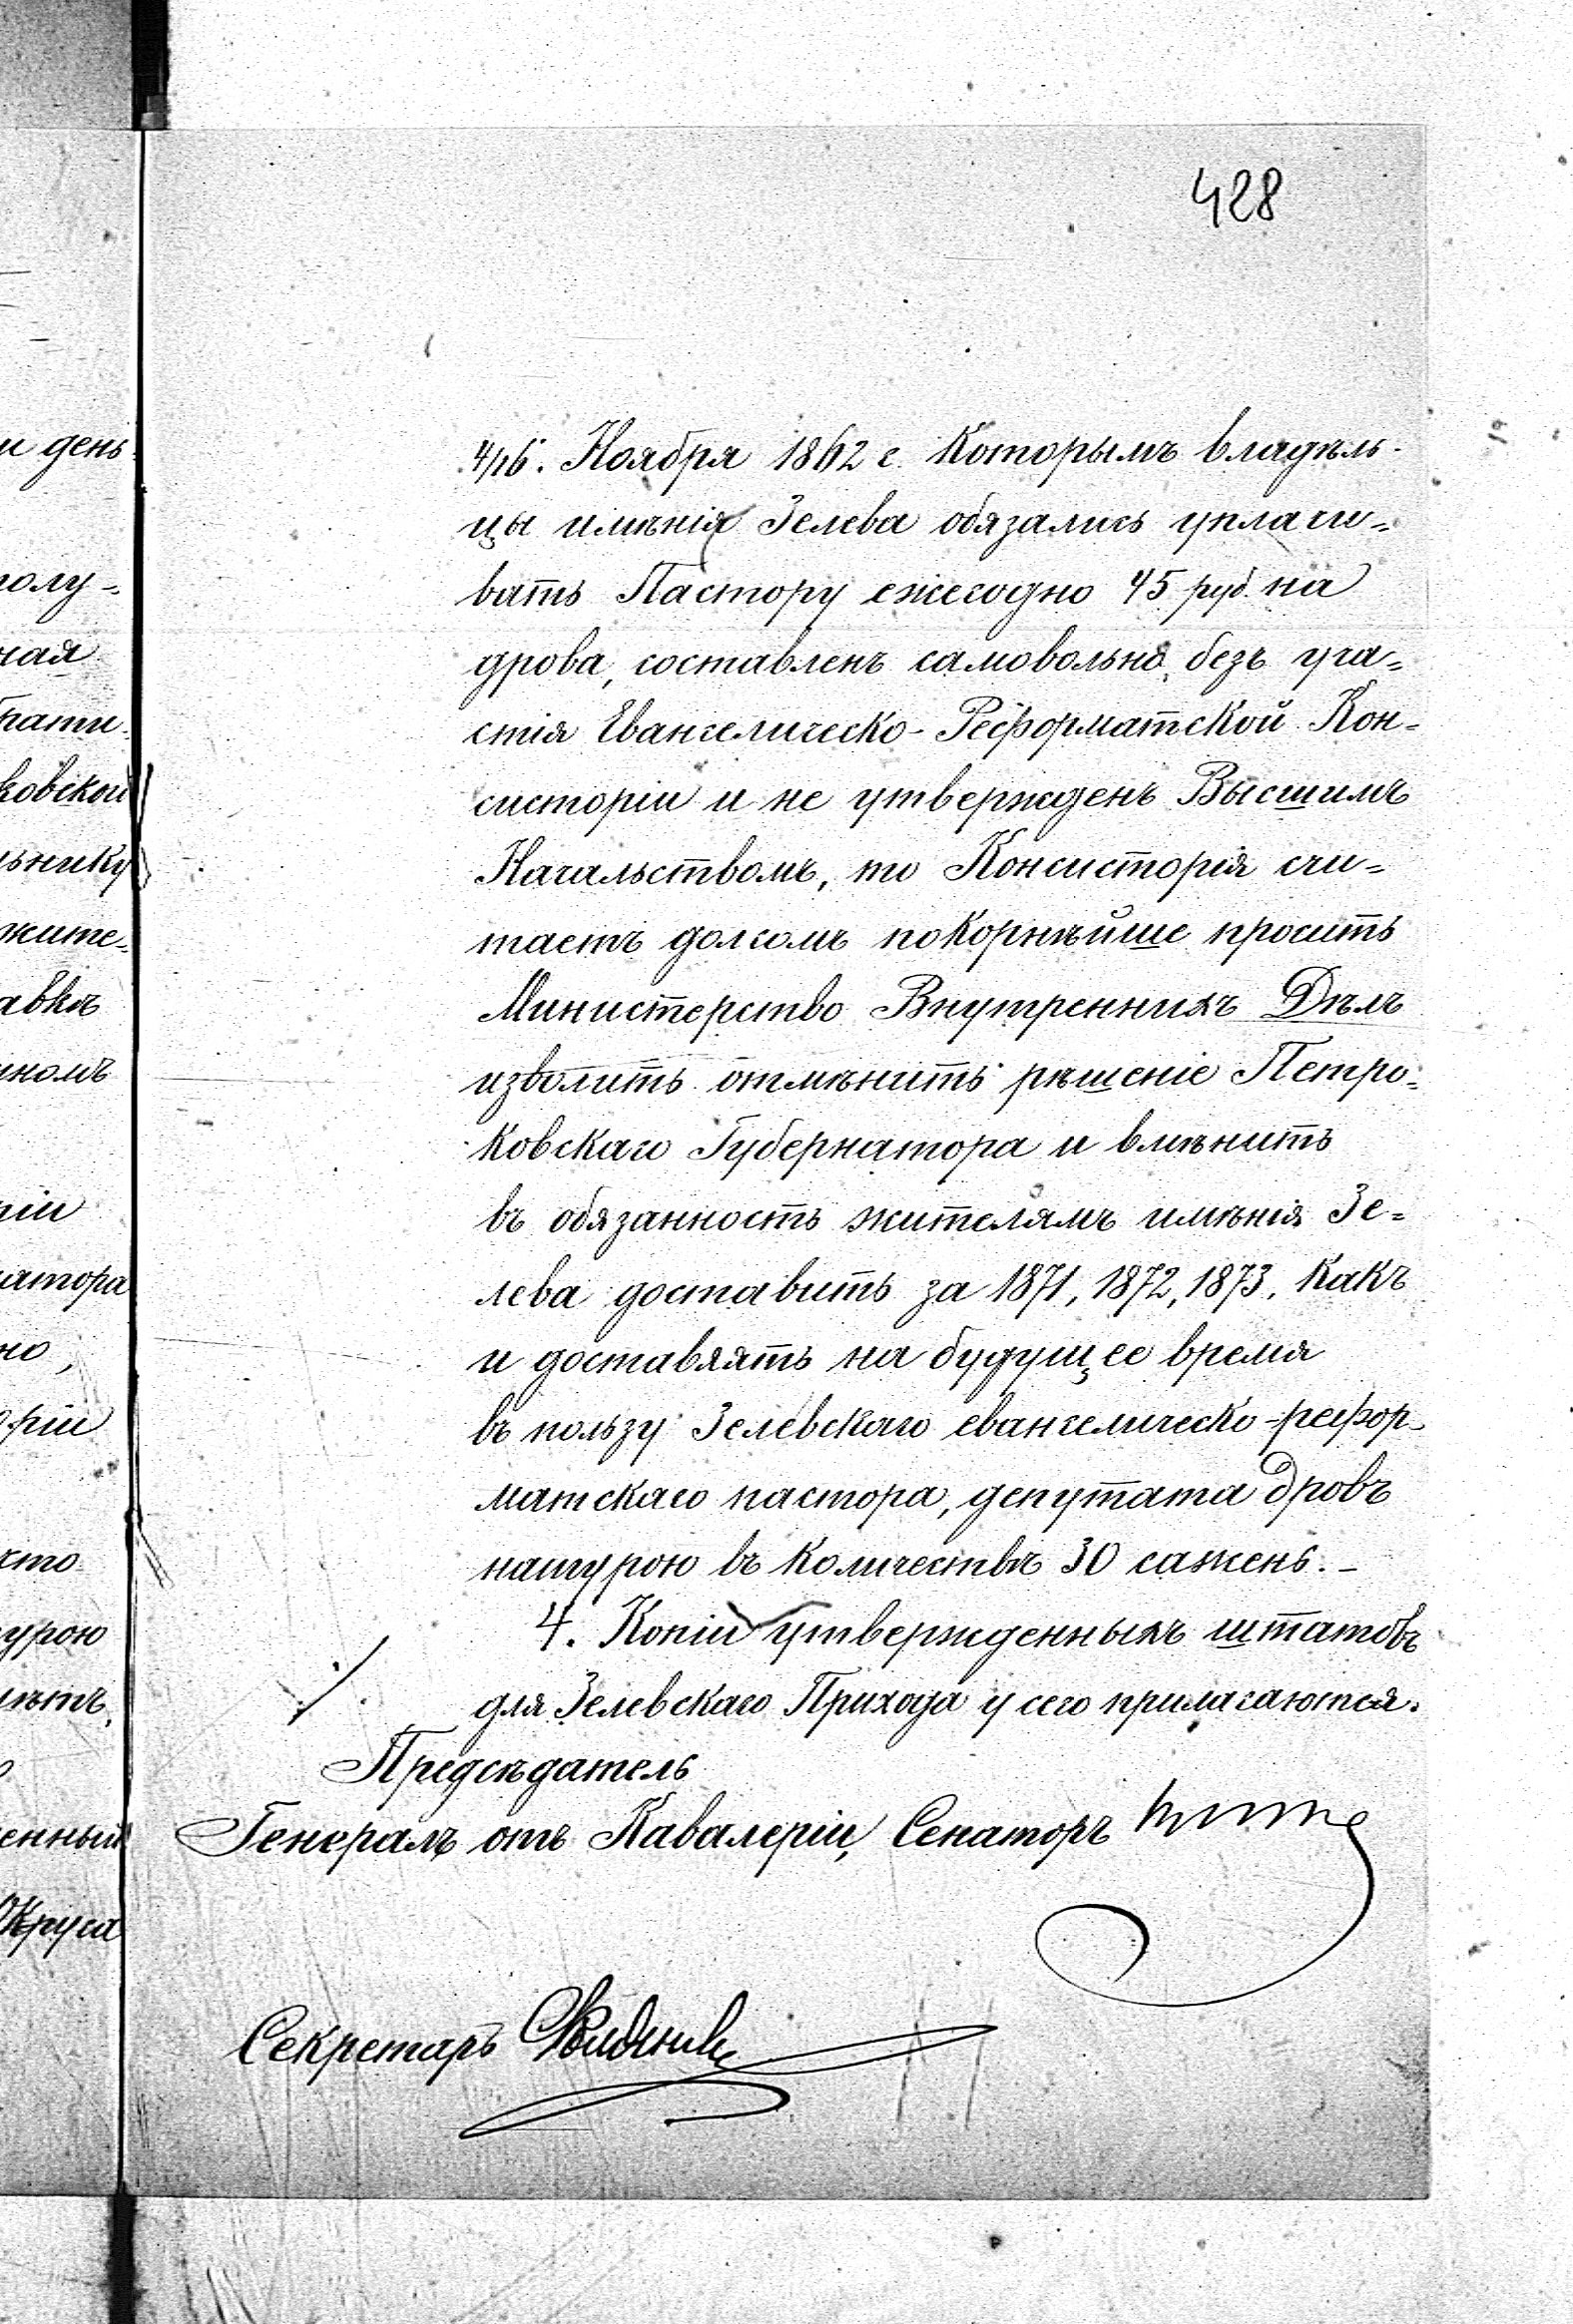 428
4/16. Ноября 1862 г. Которымъ владѣль-
цы имѣнія Зелева обязались уплачи=
вать Пастору ежегодно 45 руб. на
дрова, составленъ самовольно, безъ уча=
стія Евангелическо-Реформатской Кон=
систоріи и не утвержденъ Высшимъ
Начальствомъ, то Консисторія счи=
таетъ долгомъ покорнѣйше просить
Министерство Внутреннихъ Дѣлъ
изволить отмѣнить рѣшеніе Петро=
ковскаго Губернатора и вмѣнить
въ обязанность жителямъ имѣнія Зе=
лева доставить за 1871, 1872, 1873, какъ
и доставлять на будущее время
въ пользу Зелевскаго евангелическо-рефор-
матскаго пастора, депутата дровъ
натурою въ количествѣ 30 сажень.-
4. Копіи утвержденныхъ штатовъ
для Зелевскаго Прихода у сего прилагаются.
Предсѣдатель
Генералъ отъ Кавалеріи, Сенаторъ
Секретарь